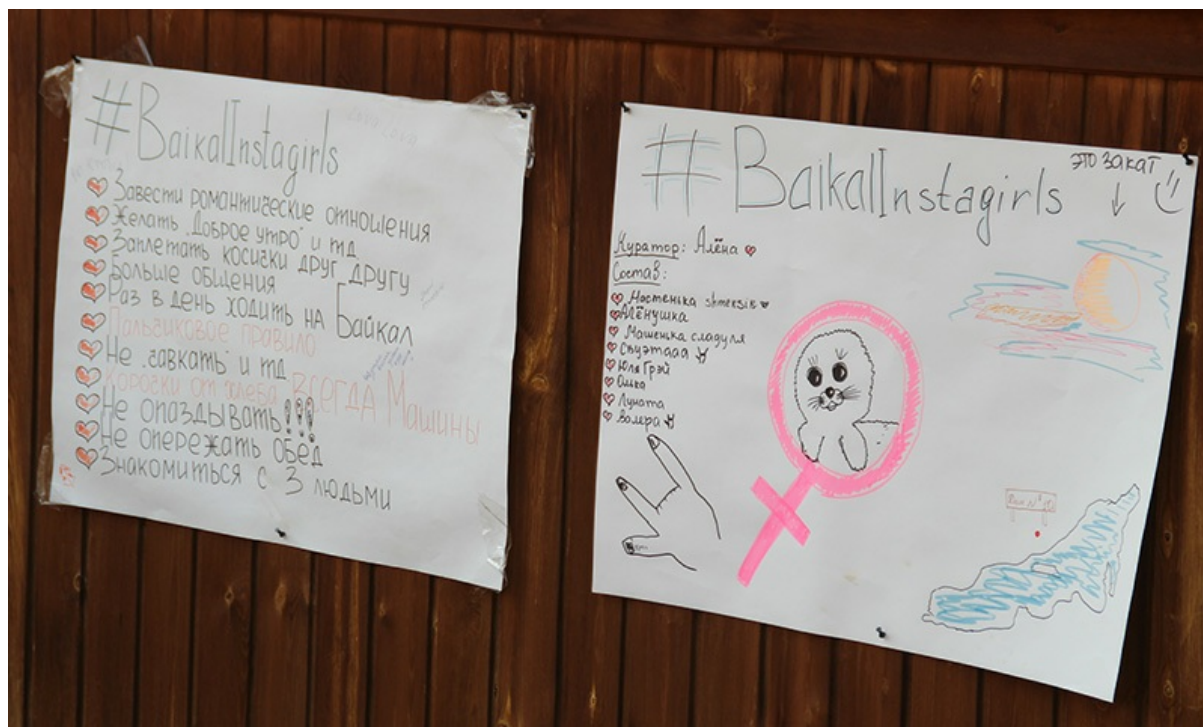 #BaikalInstagirls
Завести романтические отношения
Желать "Доброе утро" и тд
Заплетать косички друг другу
Больше общения
Раз в день ходить на Байкал
Пальчиковое правило
Не "гавкать" и тд
Корочки от хлеба ВСЕГДА Машины
Не опаздывать!!!
Не опережать обед
Знакомиться с 3 людьми
#BaikalInstagirls
ЭТО ЗАКАТ
Куратор: Алёна
Состав:
Настенька
Алёнушка
Машенька сладуля
Юля Грэй
Олька
Луната
Валера